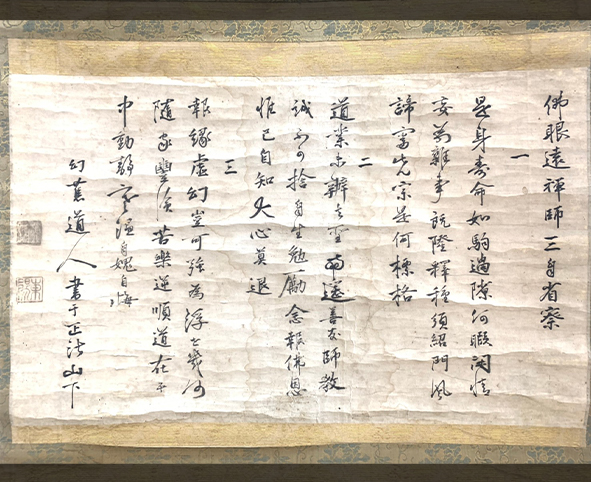 佛眼遠禪師三自省察
一
是身壽命如駒過隙何暇閑情
妄為雜事既隆釋種須紹門風
諦審先宗是何標格
二
道業未辦去聖時遙善友師教
誠不可捨自生勉勵念報佛恩
惟己自知大心莫退
三
報緣虛幻豈可強為浮世幾何
隨家豐儉苦樂逆順道在其
中動靜寒温自愧自悔
幻蕉道人 書于正法山下